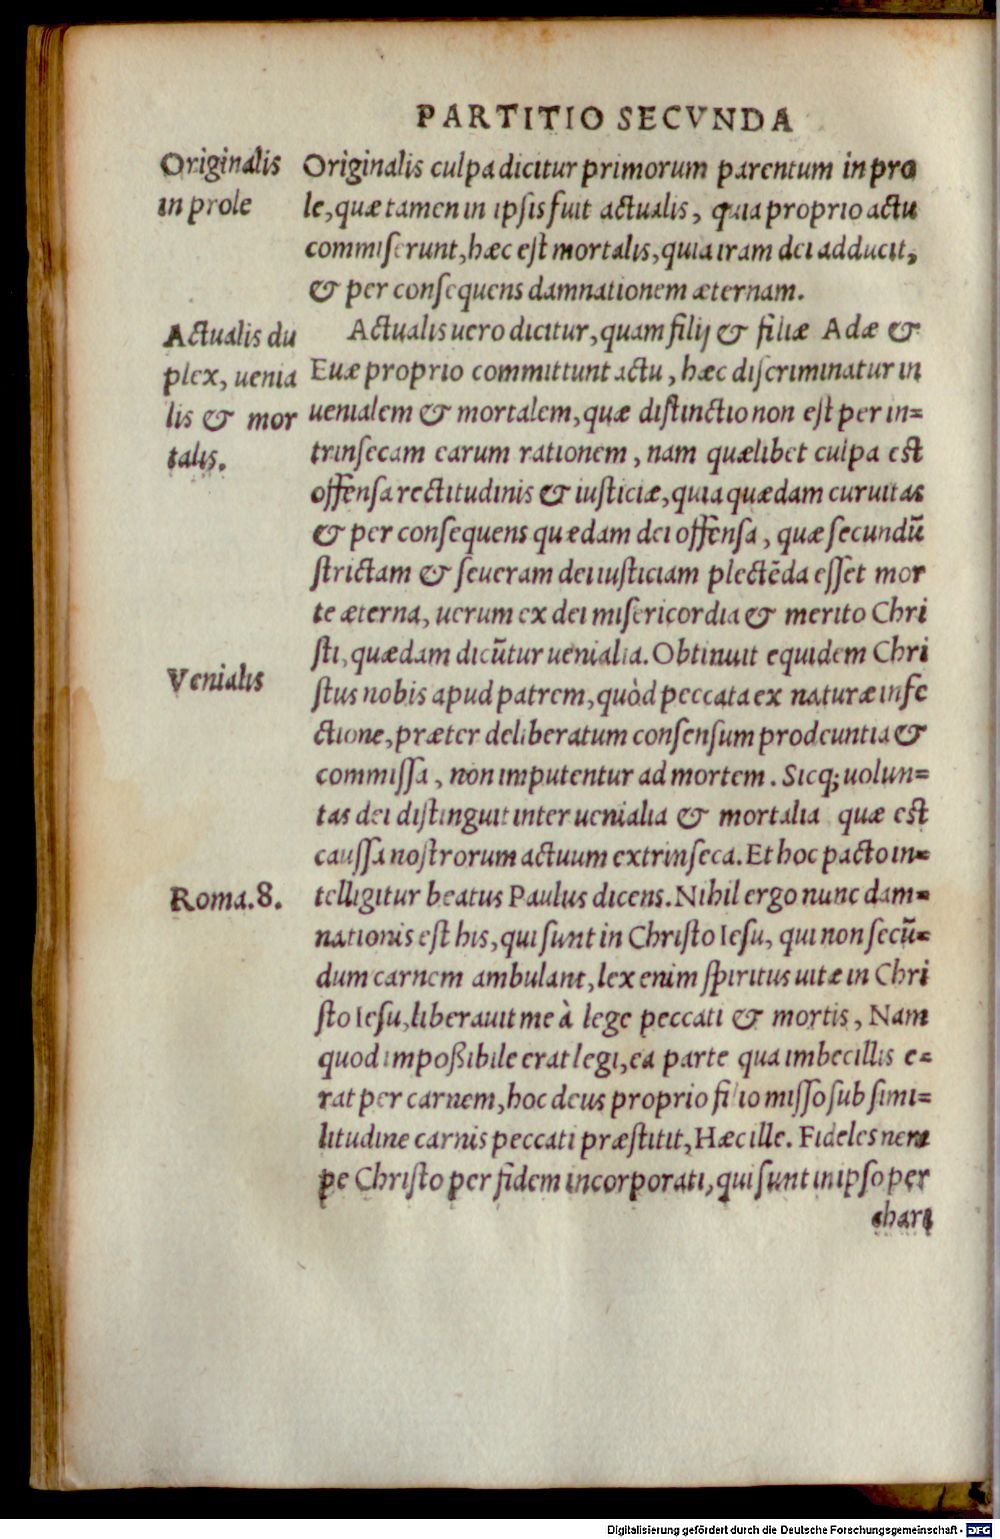 PARTITIO SECVNDA
Originalis
in prole
Originalis culpa dicitur primorum parentum in pro
le, quæ tamen in ipsis fuit actualis, quia proprio actu
commiserunt, hæc est mortalis, quia iram dei adducit,
& per consequens damnationem æternam.
Actualis du
plex, uenia
lis & mor
talis.
Actualis uero dicitur, quam filij & filiæ Adæ &
Euæ proprio committunt actu, hæc discriminatur in
uenialem & mortalem, quæ distinctio non est per in=
trinsecam earum rationem, nam quælibet culpa est
offensa rectitudinis & iusticiæ, quia quædam curuitas
& per consequens quædam dei offensa, quæ secundũ
strictam & seueram dei iusticiam plectẽda esset mor
te æterna, uerum ex dei misericordia & merito Chri
sti, quædam dicũtur uenialia. Obtinuit equidem Chri
Venialis
stus nobis apud patrem, quòd peccata ex naturæ infe
ctione, præter deliberatum consensum prodeuntia &
commissa, non imputentur ad mortem. Sicq; uolun=
tas dei distinguit inter uenialia & mortalia quæ est
caussa nostrorum actuum extrinseca. Et hoc pacto in=
Roma. 8.
telligitur beatus Paulus dicens. Nihil ergo nunc dam=
nationis est his, qui sunt in Christo Iesu, qui non secũ=
dum carnem ambulant, lex enim spiritus uitæ in Chri
sto Iesu, liberauit me à lege peccati & mortis, Nam
quod impoßibile erat legi, ea parte qua imbecillis e=
rat per carnem, hoc deus proprio filio misso sub simi=
litudine carnis peccati præstitit, Hæc ille. Fideles nem
pe Christo per fidem incorporati, qui sunt in ipso per
chari
Digitalisierung gefördert durch die Deutsche Forschungsgemeinschaft - DFG